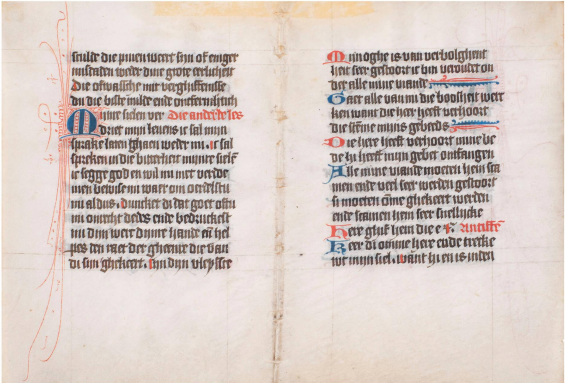 sculde die pinen weert sijn of eniger
misdaden weder dine grote eerlicheit
Die ofwassche mit verghiffenisse
du die biste milde ende ontfermhertich
Mine sielen ver Die ander les
Mdriet mijn levens ic sal mijn
sprake laten ghaen weder mi. ic sal
spreken in die bitterheit mijnre siele
ic segge god en wil mi niet verdoe
men bewise mi waer om oordelstu
mi aldus. Dunket di dat goet ofstu
mi onrecht dedes ende bedruckest
mi dijn werc dijnre hande en hel
pes den raet der gheenre die van
di sijn ghekeert. sijn dijn vleyssce
Mijn oghe is van verbolghent
heit seer gestoort ic bin veroudet on
der alle mine viande
Gaet alle van mi die boosheit werc
ken want die here heeft verhoort
die stemme mijns gebeds
Die here heeft verhoort mine be
de hi heeft mijn gebet ontfangen
Alle mine viande moeten hem sca
men ende veel seer werden gestoort
si moeten omme ghekeert werden
ende scamen hem seer snellijcke
Heer ghif hem die e Antiffe
Keer di omme here ende trecke
wt mijn siel. want hi en is inden